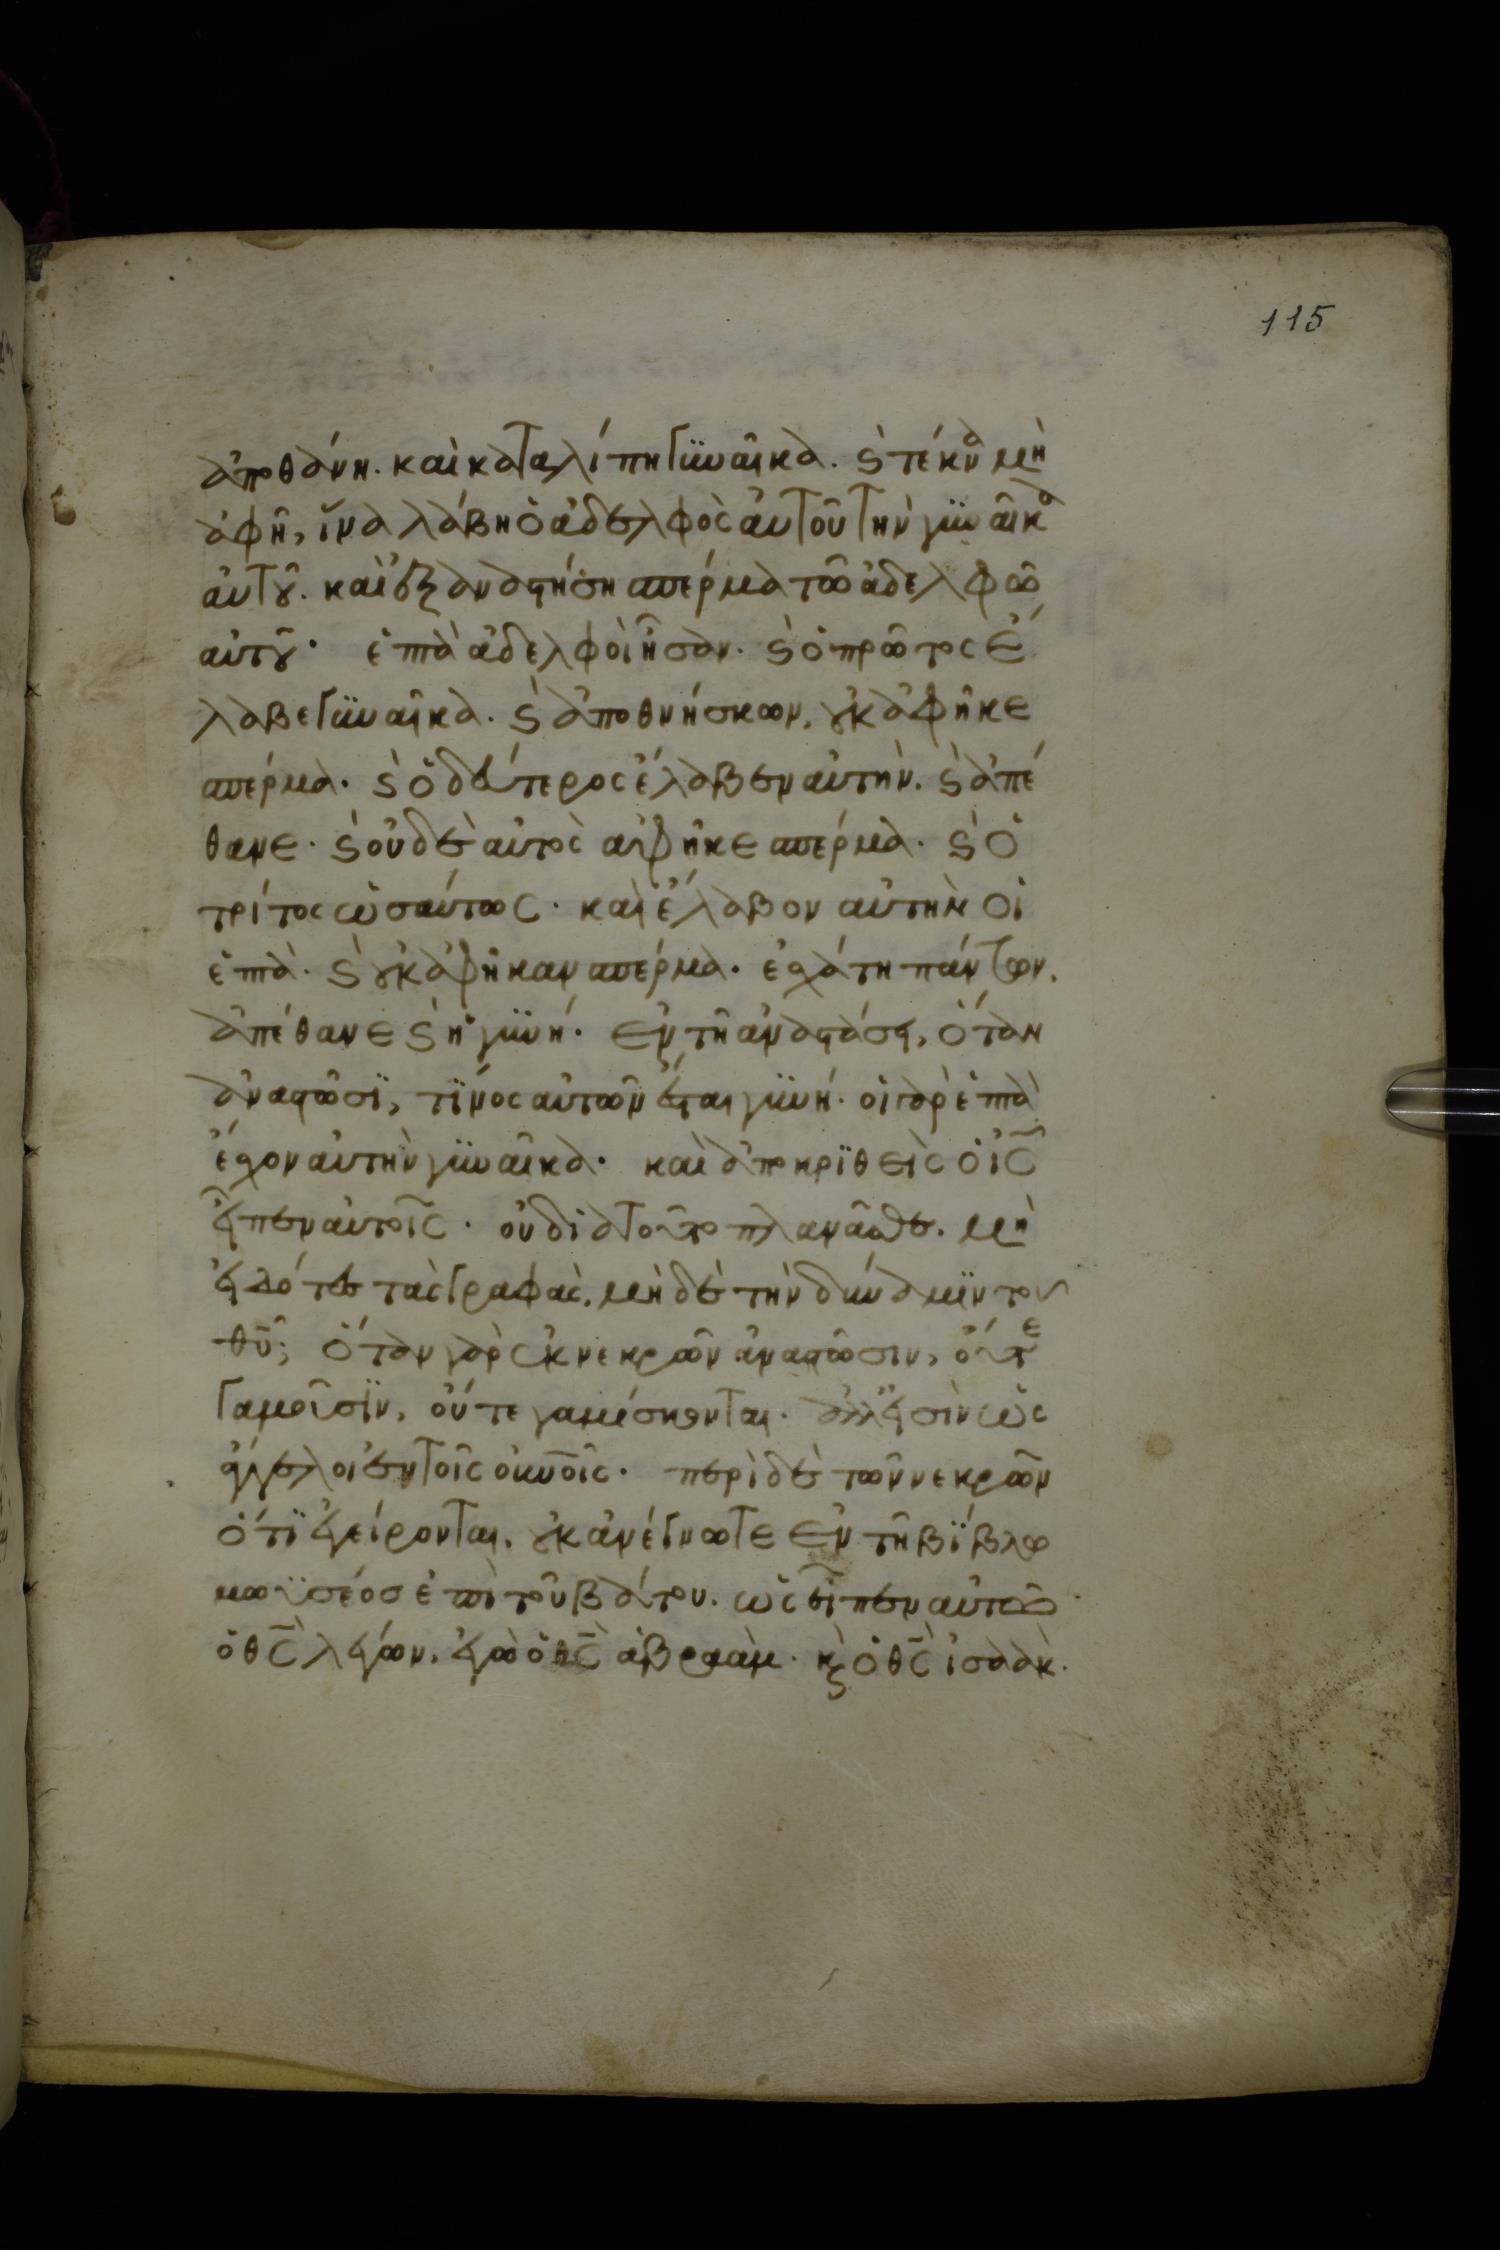 115
ἀποθάνη. καὶ καταλίπη γϋναῖκα. ϛ τέκνα μὴ
ἀφῆ, ἵνα λάβη ὁ ἀδελφὸς ἀυτοῦ τὴν γϋναῖκα
ἀυτȣ̃. καὶ ἐξαναστήση σπέρμα τῶ ἀδελφῶ
αὐτȣ̃· ἑπτὰ ἀδελφοὶ ἦσαν. ϛ ὁ πρῶτος ἔ
λαβε γϋναῖκα. ϛ ἀποθνήσκων, ȣ̓κ ἀφῆκε
σπέρμα. ϛ ὁ δεύτερος ἔλαβεν αὐτὴν. ϛ ἀπέ
θανε. ϛ οὐδὲ αὐτὸς ἀφῆκε σπέρμα. ϛ ὁ
τρίτος ὡσαύτως. καὶ ἔλαβον αὐτὴν οἱ
ἑπτὰ. ϛ ȣ̓κ ἀφῆκαν σπέρμα. ἐσχάτη πάντων.
ἀπέθανε ϛ ἡ γϋνή. ἐν τῆ ἀναστάσει, ὅταν
ἀναστῶσϊ, τΐνος αὐτῶν ἔσται γϋνή. οἱ γὰρ ἑπτὰ
ἔσχον αὐτὴν γϋναῖκα. καὶ ἀποκρϊθεὶς ὁ ις̄
εἶπεν αὐτοῖς. οὐ διατοῦτο πλανᾶσθε. μὴ
εἰδότες τὰς γραφὰς. μὴ δὲ τὴν δύναμϊν του
θῡ; ὅταν γὰρ ἐκ νεκρῶν ἀναστῶσιν, οὔτε
γαμοῦσϊν, οὔτε γαμίσκονται. ἀλλ' εἰσὶν ὡς
ἄγγελοι ἐν τοῖς οὐνοῖς. περὶ δὲ τῶν νεκρῶν
ὅτϊ ἐγείρονται, ȣ̓κ ἀνέγνωτε ἐν τῆ βΐβλω
μωϋσέος ἐπὶ τοῦ βάτου. ὡς εἶπεν αὐτῶ
ὁ θς̄ λέγων. ἐγὼ ὁ θς̄ ἀβραὰμ. κὶ ὁ θς̄ ἰσαὰκ.